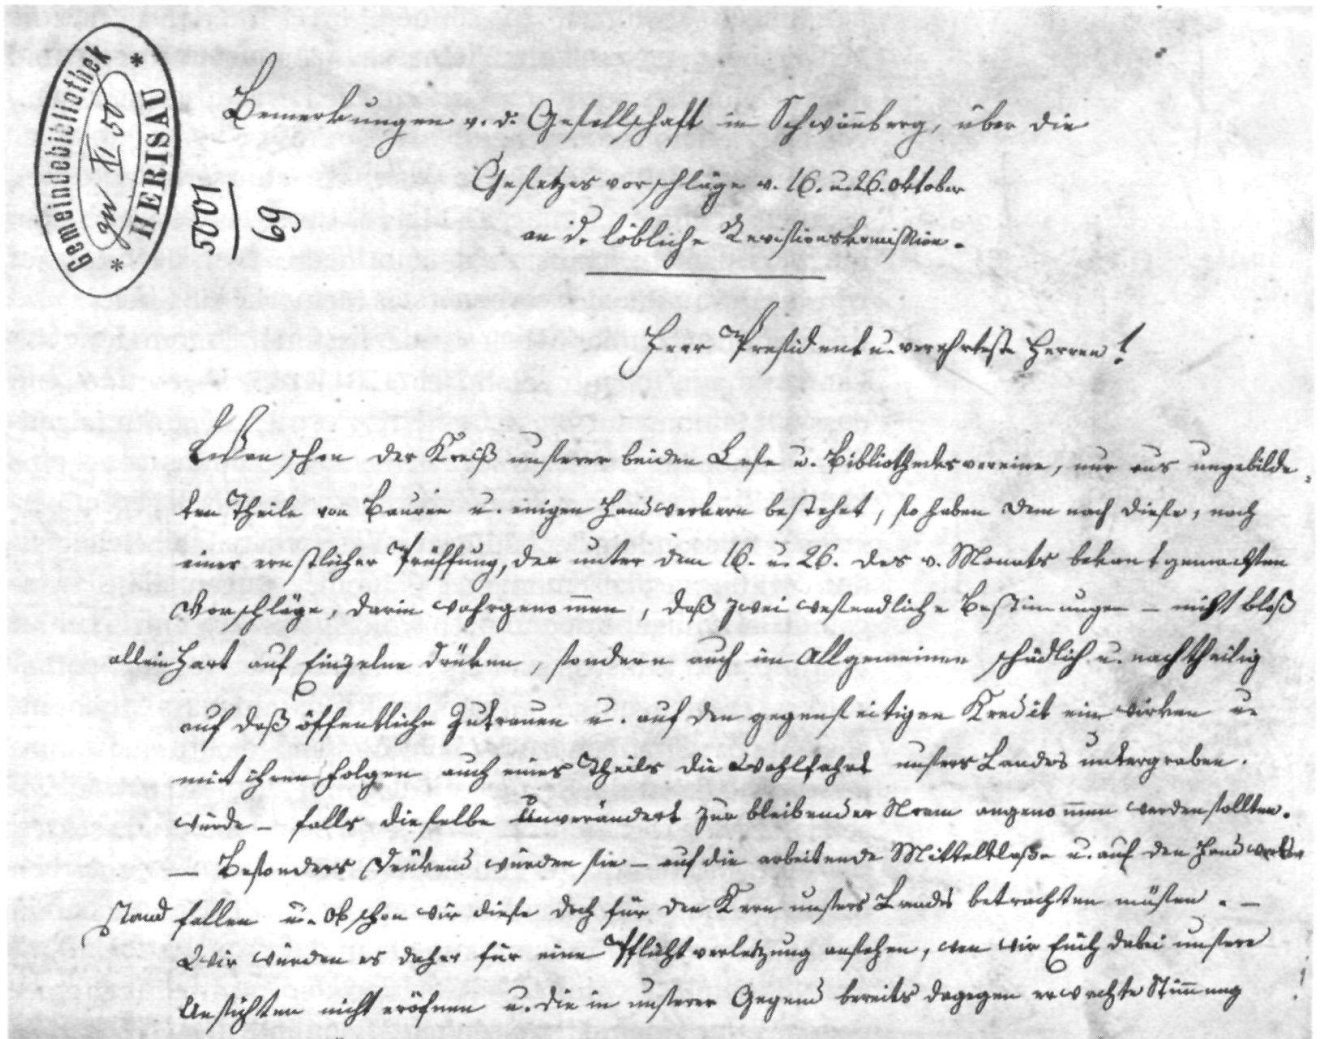 Gemeindebibliothek
HERISAU
XI. 50
5001
69
Bemerkungen v. d. Gesellschaft in Schwänberg, über die
Gesetzesvorschläge v. 16. u. 26. Oktober
an d. löbliche Revisionskomission.
Herr President u. verehrteste Herren!
Schon der Kreiß unserer beiden Lese u. Bibliothekvereine, nur aus ungebilde-
ten Theile von Bauren u. einigen Handwerkern bestehet, so haben dem noch diese, nach
einer ernstlicher Prüffung, der unter dem 16. u. 26. des v. Monats bekantgemachten
Vorschläge, darin wahrgenomen, daß zwei wesendliche Bestimungen – nicht bloß
allein Hart auf Einzelne drüken sondern auch im Allgemeinen schädlich u. nachtheilig
auf daß öffentliche Zutrauen u. auf den gegenseitigen Kredit ein wirken u.
mit ihren Folgen auch eines Theils die Wohlfahrt unsers Landes untergraben.
würde – falls dieselbe Unverändert zur bleibender Norm angenomen werden sollten.
– Besonders drükend würden sie – auf die arbeitende Mittelklaße u. auf den Handwerker
stand fallen u. Ob schon wir diese doch für den Kern unsers Landes betrachten müßen. –
Wir würden es daher für eine Pflichtverletzung ansehen, wen wir Euch dabei unsere
Ansichten nicht eröfnen u. die in unserer Gegend bereits dagegen erwachte Stimung